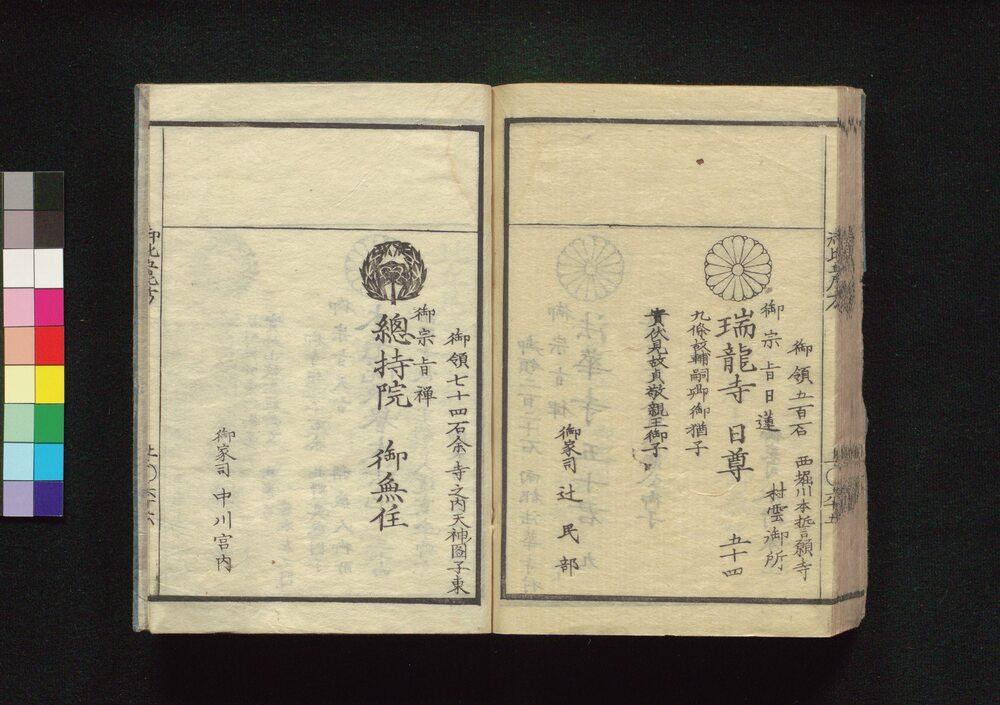 御領五百石 西堀川本誓願寺
御宗旨日蓮 村雲御所
瑞龍寺 日尊 五十四
九條故輔嗣卿御猶子
實伏見故貞敬親王御子
御家司 辻民部
御領七十四石余 寺之内天神圖子東
御宗旨禅
總持院 御無住
御家司 中川宮内